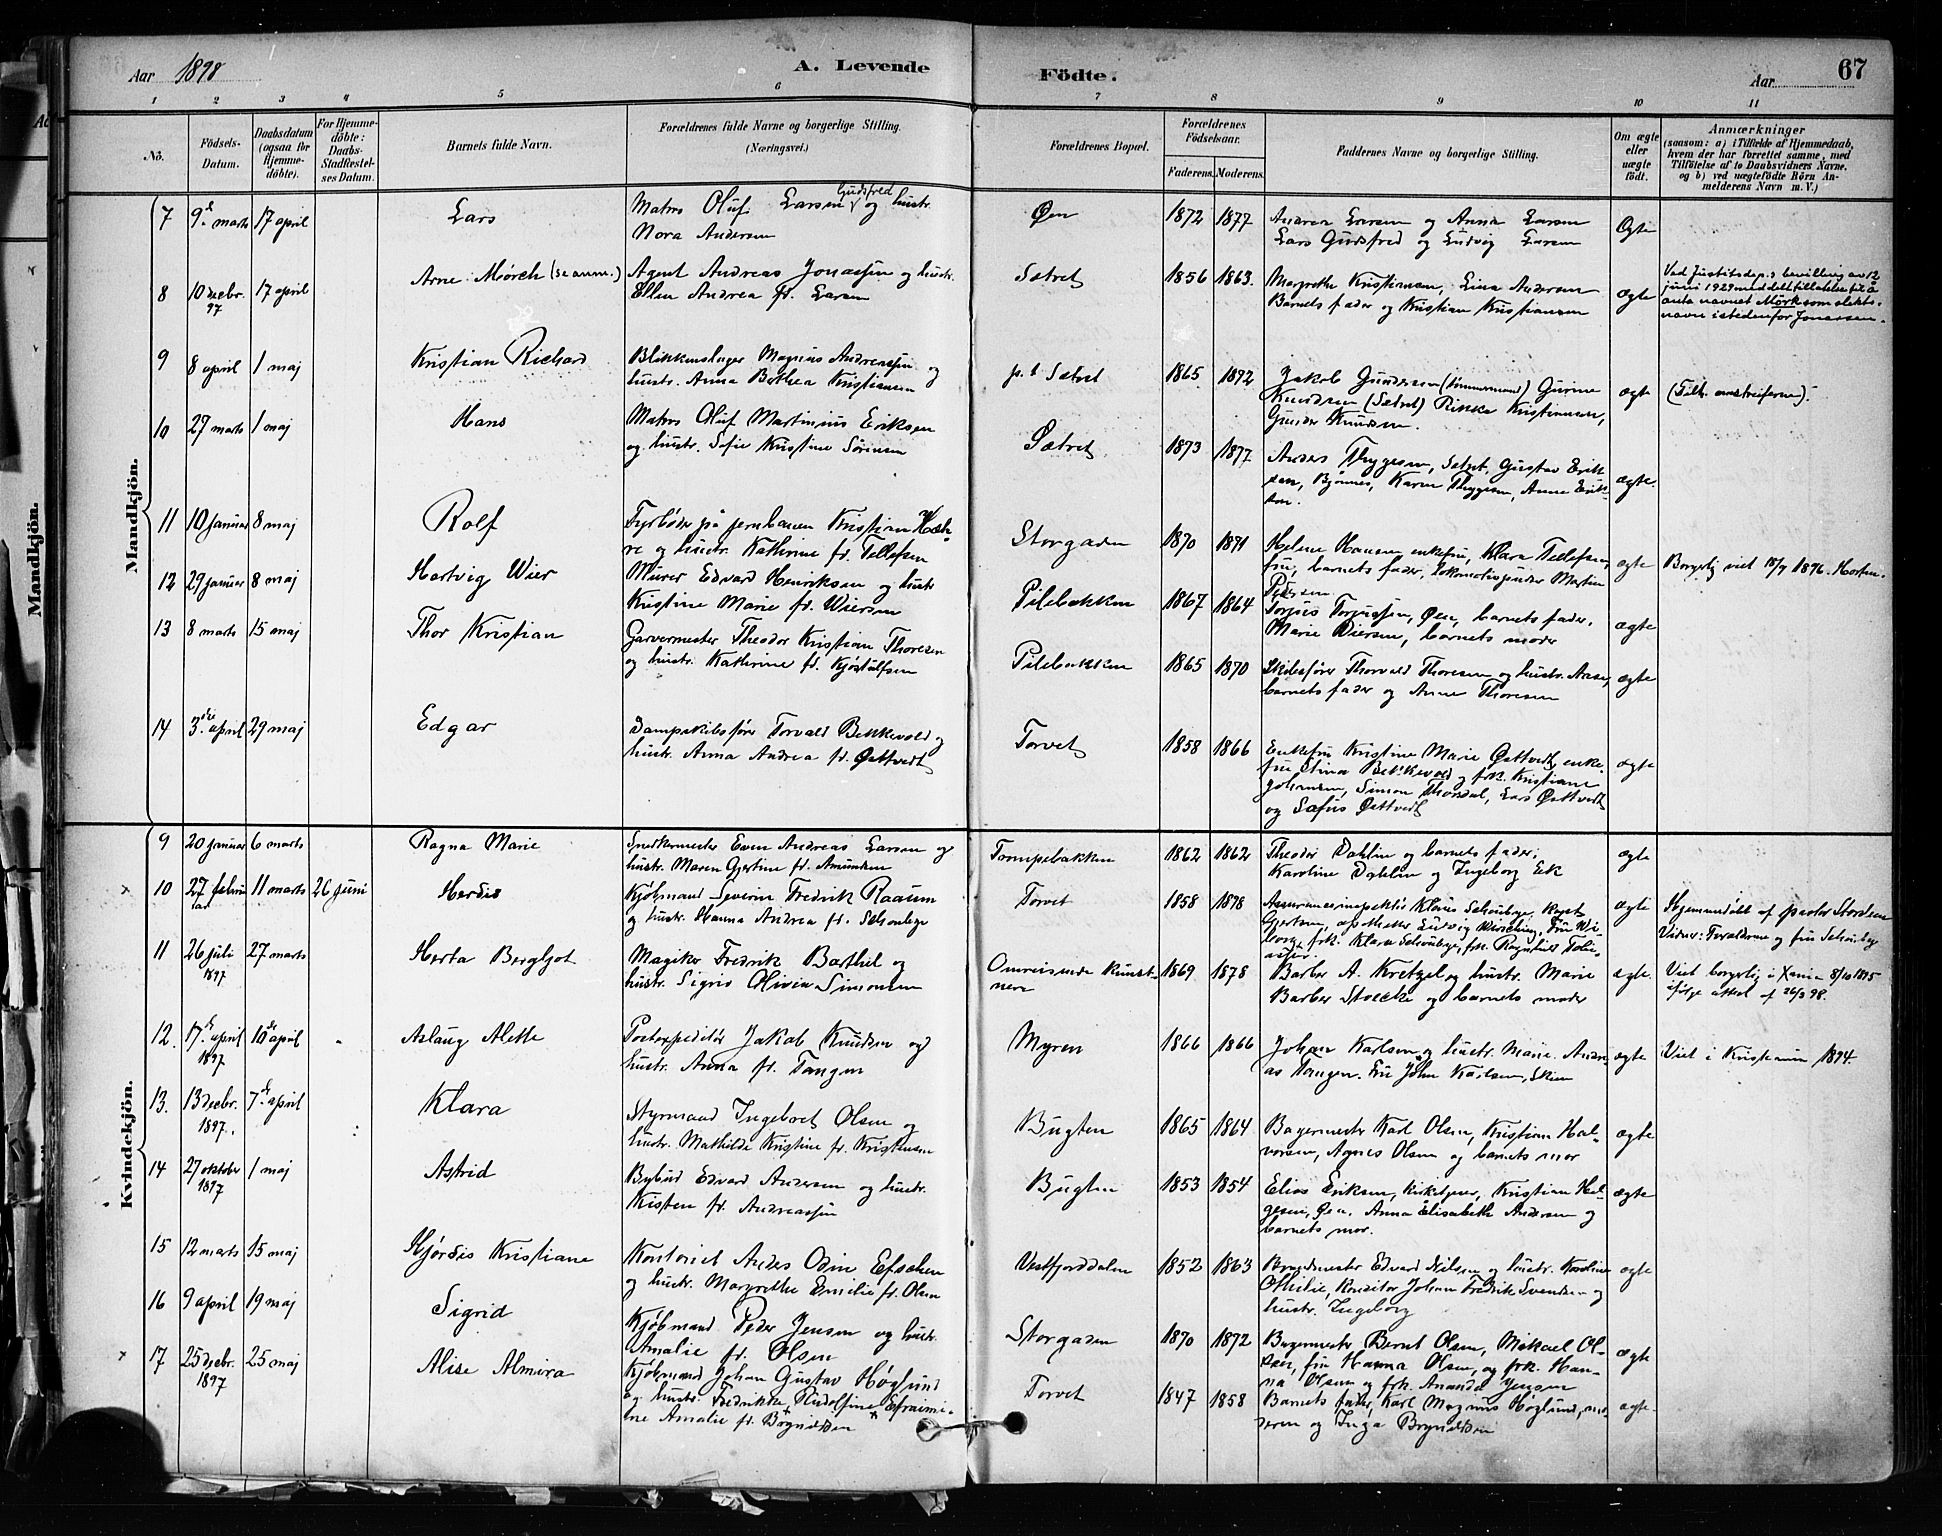 Aar 1898
A. Levende
Födte.
Aar
67
1 2 3 4 5 6 7 8 9 10 11
No.
Födsels-Datum.
Daabsdatum (ogsaa for Hjemmedöbte).
For Hjemmedöbte: Daabs-Stadfæstelses Datum.
Barnets fulde Navn.
Forældrenes fulde Navne og borgerlige Stilling.
(Næringsvei.)
Forældrenes Bopæl.
Forældrenes Födselsaar.
Faderens. Moderens.
Faddernes Navne og borgerlige Stilling.
Om ægte eller uægte födt.
Anmærkninger
(saasom: a) i Tilfælde af Hjemmedaab, hvem der har forrettet samme, med Tilföielse af to Daabsvidners Navne, og b) ved uægtefödte Börn Anmelderens Navn m. V.)
Mandkjön.
Mandkjön.
7 9de marts 17 april Lars Matros Oluf Larsen Gudsfred og hustr. Øen 1872 1877 Andrea Larsen og Anna Larsen Ægte
Nora Andersen Lars Gudsfred og Ludvig Larsen
8 10 decbr. 97 17 april Arne Mørch (se anm.) Agent Andreas Jonassen og hustr. Sætret 1856 1863. Margrethe Kristiansen, Lina Andersen ægte Ved Justitsdep.s bevilling av 12
Ellen Andrea f. Larsen Barnets fader og Kristian Kristiansen juni 1929 meddelt tillatelse til å
anta navnet Mörk som slekts-
navn istedenfor Jonassen.
9 8 april 1 maj Kristian Richard Blikkenslager Magnus Andreassen og p. t. Sætret 1865 1892 Jakob Gundersen (tømmermand) Gurine ægte
hustr. Anna Berthea Kristiansen Knudsen (Sætret) Rikke Kristiansen,
Gunder Knudsen.
10 27 marts 1 maj Hans Matros Oluf Martinius Eriksen Sætret 1873 1877 Anders Thygesen, Sætret, Gustav Erik- ægte.
og hustr. Sofie Kristine Sørensen sen, Bjønnes, Karen Thygesen, Anne Erik-
sen.
11 10 januar 8 maj Rolf Fyrbøder på jernbanen Kristian Storgaden 1870 1871 Helene Hansen enkefru, Klara Tellefsen, ægte Borgerlig viet 18/7 1896. Horten.
og hustr. Kathrine f. Tellefsen fru, barnets fader, Martin
Pedersen
12 29 januar 8 maj Hartvig Wier Murer Edvard Henriksen og hustr. Pilebakken 1867 1864 Torjus Torjussen, Øen, barnets fader, ægte
Kristine Marie f. Wiersen Marie Wiersen, barnets moder
13 8 marts 15 maj Thor Kristian Garvermester Theodor Kristian Thoresen Pilebakken 1865 1870 Skibsfører Thorvald Thoresen og hustr. Aase, ægte
og hustr. Kathrine f. Kjøstulfsen barnets fader og Anne Thoresen
14 3die april 29 maj Edgar Dampskibsfører Torvald Bekkevold og Torvet 1858 1866 Enkefru Kristine Marie Østtvedt, enke- ægte
hustr. Anna Andrea f. Østtvedt fru Stina Bekkevold og frk. Kristiane
Johansen, Simon Thorsdal, Lars Østtvedt
og Sofus Østtvedt
Kvindekjön.
9 20 januar 6 marts Ragna Marie Snedkermester Even Andreas Larsen og Trompebakken 1862 1862 Theodor Dahlin og barnets fader, ægte
hustr. Maren Gjertine f. Amundsen Karoline Dahlin og Ingeborg Eek
10 27 februar 11 marts 26 juni Herdis Kjøbmand Severin Fredrik Raaum Torvet 1858 1878 Assuranceinspektør Klaus Schouboe ægte Hjemmedøbt af pastor
og hustr. Hanna Andrea f. Gjertsen, apotheker Ludvig
frk. Klara frk. Ragnhild
11 26 juli 1897 27 marts Herta Bergljot Magiker Fredrik Barthel og Omreisende Kunstnere 1869 1878 Barber A. Kretzel og hustr. Marie ægte. Viet borgerlig i Xania 8/10 1895
hustr. Sigrid Olivia Simonsen Barber Stoecke og barnets moder ifølge attest af 26/3 98.
12. 17de april 1897 10de april Aslaug Alette Postexpeditør Jakob Knudsen og Myren 1866 1866 Johan Karlsen og hustr. Marie. Andre- ægte Viet i Kristiania 1894
hustr. Anna f. Tangen as Tangen. Fru John Karlsen, Skien
13. 13 decbr. 1897. 7de april Klara Styrmand Ingebret Olsen og Bugten 1865 1864 Bagermester Karl Olsen, Kristian Hal- ægte
hustr. Mathilde Kristine f. Kristensen vorsen, Agnes Olsen og barnets mor
14 27 oktober 1897 1 maj Astrid Bybud Edvard Andersen og hustr. Bugten 1853 1854 Elias Eriksen, kirketjener, Kristian Hel- ægte
Kisten f. Andreassen gesen, Øen. Anna Elisabeth Andersen og
barnets mor.
15 12 marts 15 maj Hjørdis Kristiane Kontorist Anders Odin Efschen Vestfjorddalen 1852 1863 Edvard Nilsen og hustr. Karoline ægte
og hustr. Margrethe Emilie f. Olsen Othilie, Konditor Johan Fredrik Svendsen og
hustr. Ingeborg
16 9 april 19 maj Sigrid Kjøbmand Peder Jensen og hustr. Storgaden 1870 1872 Bagermester Bernt Olsen, Mikael Ol- ægte
Amalie f. Olsen sen, fru Hanna Olsen, og frk. Han-
na Olsen og frk. Ananda Jensen
17 25 decbr. 1897 25 maj Alise Almira Kjøbmand Johan Gustav Høglund Torvet 1847 1858 Barnets fader, Karl Magnus Høglund, mo- ægte.
og hustr. Fredrikke Rudolfine Efraimi- deren og Inga Bryndtsen
ne Amalie f. Bryndtsen